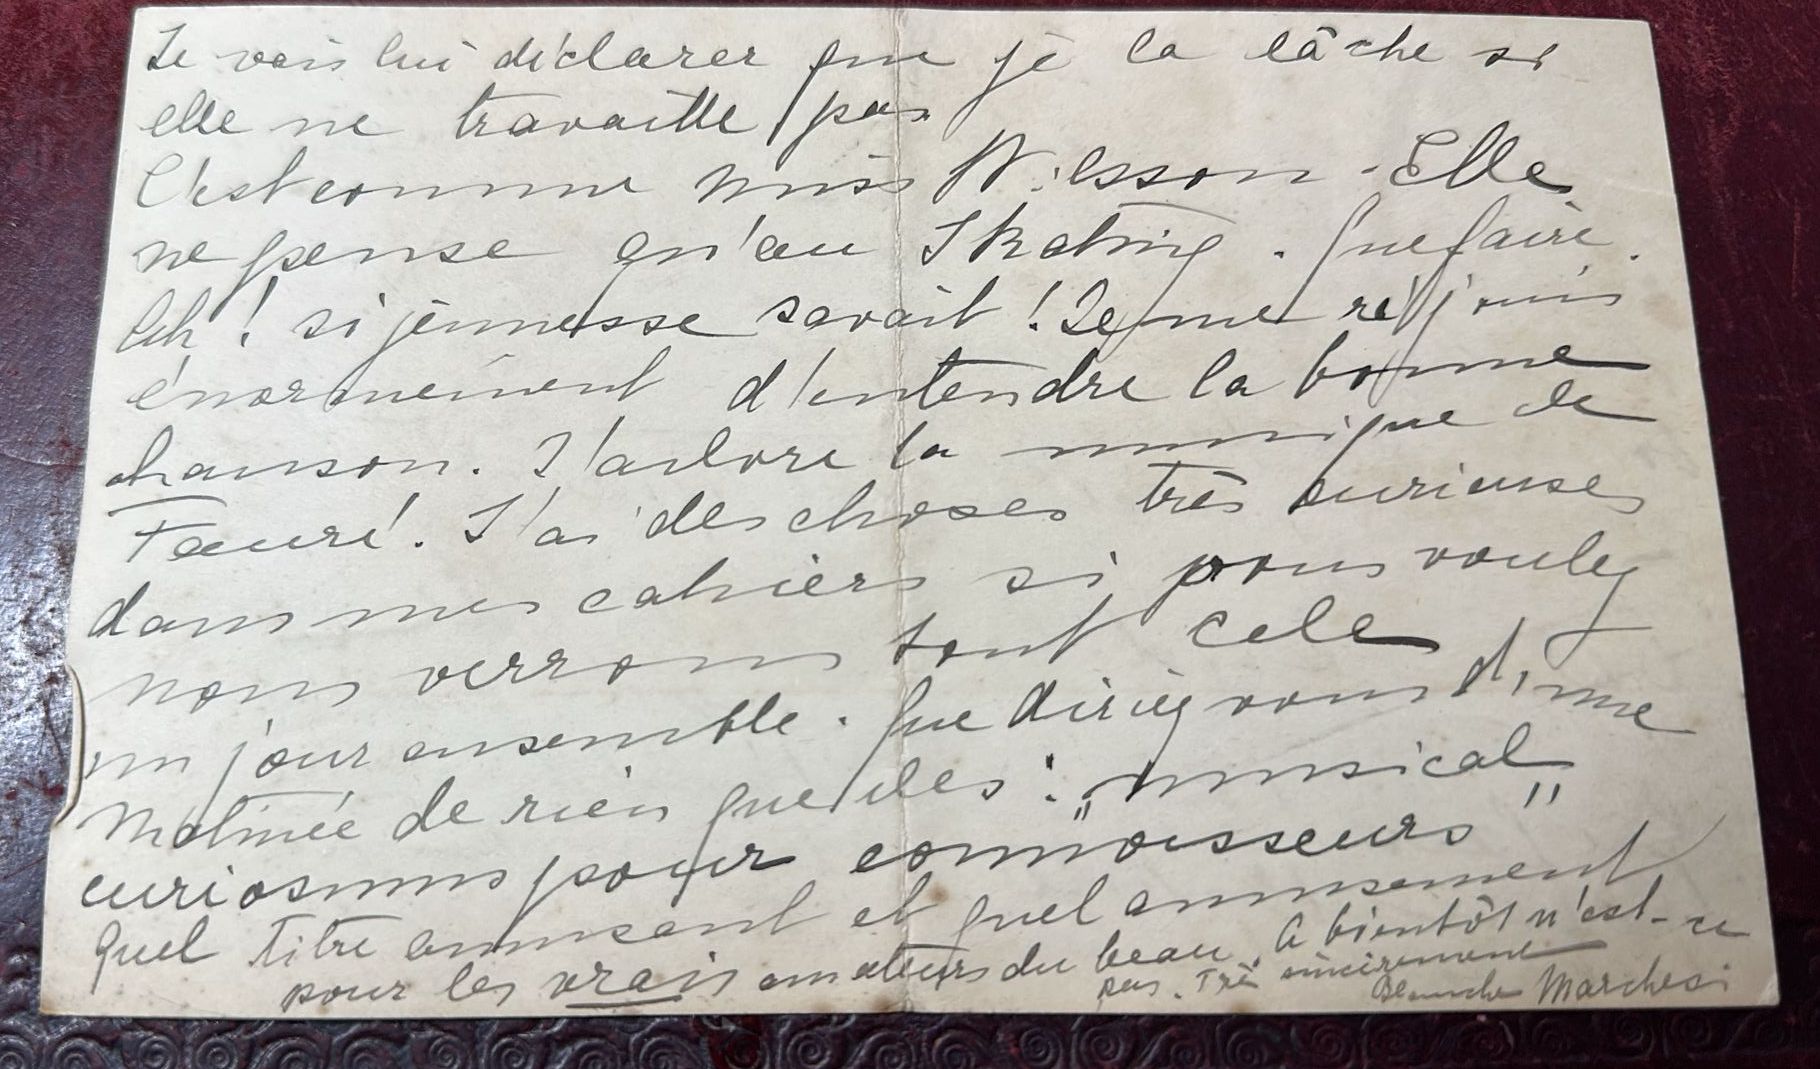 Je vais lui déclarer que je la lâche si
elle ne travaille pas
C'est comme Miss Nilsson - Elle
ne pense qu'au Skating. Que faire.
Ah! si jeunesse savait! Je me réjouis
énormément d'entendre la bonne
chanson. J'adore la musique de
Fauré. J'ai des choses très curieuses
dans mes cahiers si vous voulez
nous verrons tout cela
un jour ensemble. Que diriez vous d'une
Matinée de rien que des: „musical
curiosums pour connoisseurs"
Quel titre amusant et quel amusement
pour les vrais amateurs du beau. A bientôt n'est-ce
pas. Très sincèrement
Blanche Marchesi